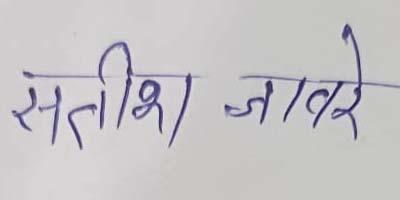 सतीश जावरे